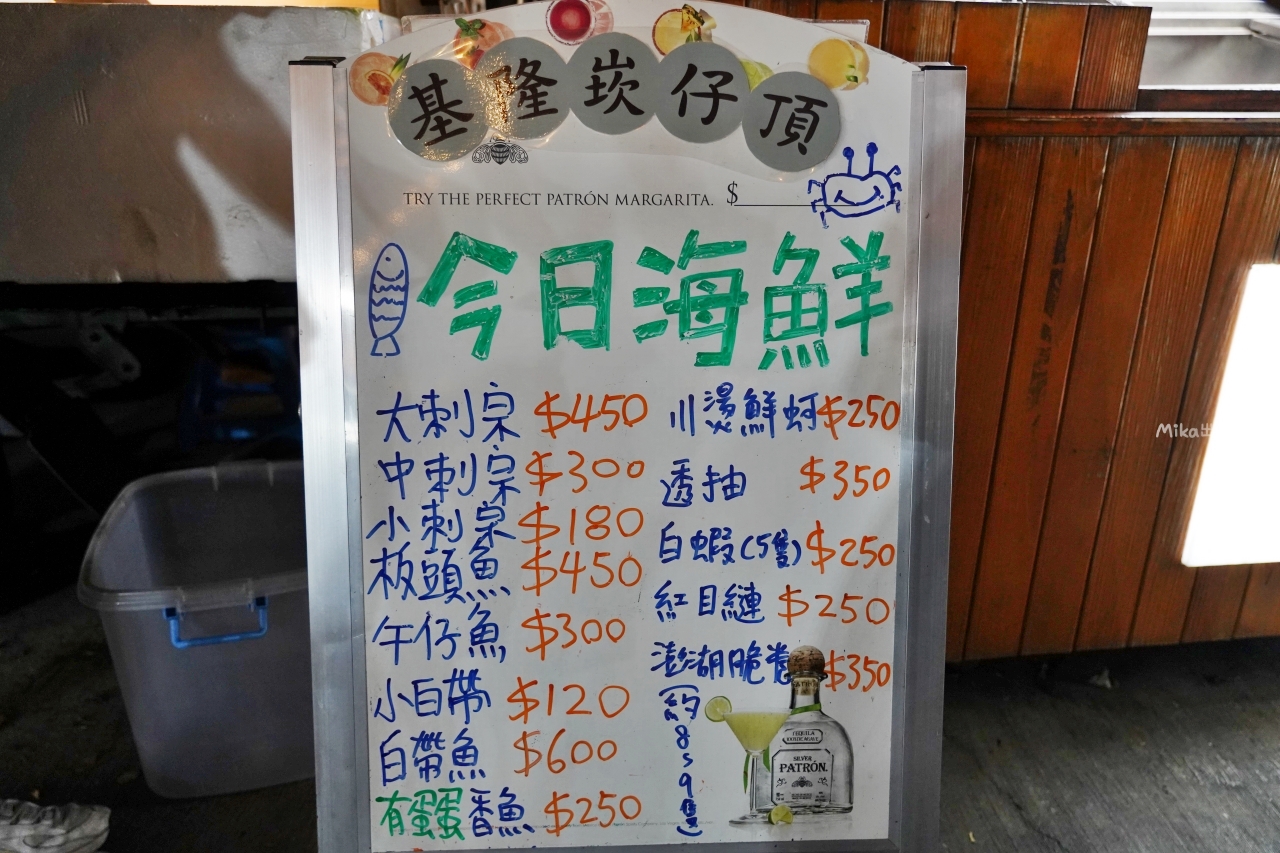 基隆崁仔頂
TRY THE PERFECT PATRÓN MARGARITA. $
今日海鮮
大刺宗 $450
中刺宗 $300
小刺宗 $180
板頭魚 $450
午仔魚 $300
小白帶 $120
白帶魚 $600
有蛋蛋香魚 $250
川燙鮮蚵 $250
透抽 $350
白蝦(5隻) $250
紅目鰱 $250
澎湖脆卷 $350
(約8s9隻)
SILVER
PATRÓN
Mika出